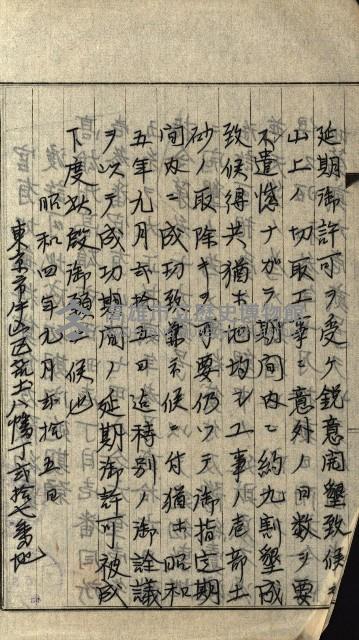 延期御許可ヲ受ケ鋭意開墾致候モ
山上ノ切取工事ニ意外ノ日数ヲ要シ
不遺憾ナガラ期間内ニ約九割墾成
致候得共猶ホ地均シ工事ノ壱部土
砂ノ取除キヲ要仍ツテ御指定期
間内ニ成功致兼ネ候ニ付猶ホ昭和
五年九月弐拾五日迄特別ノ御詮議
ヲ以テ成功期間ノ延期御許可被成
下度此段御願ニ候也
昭和四年九月弐拾五日
東京市牛込区荒土八幡丁弐拾七番地
高雄市立歷史博物館